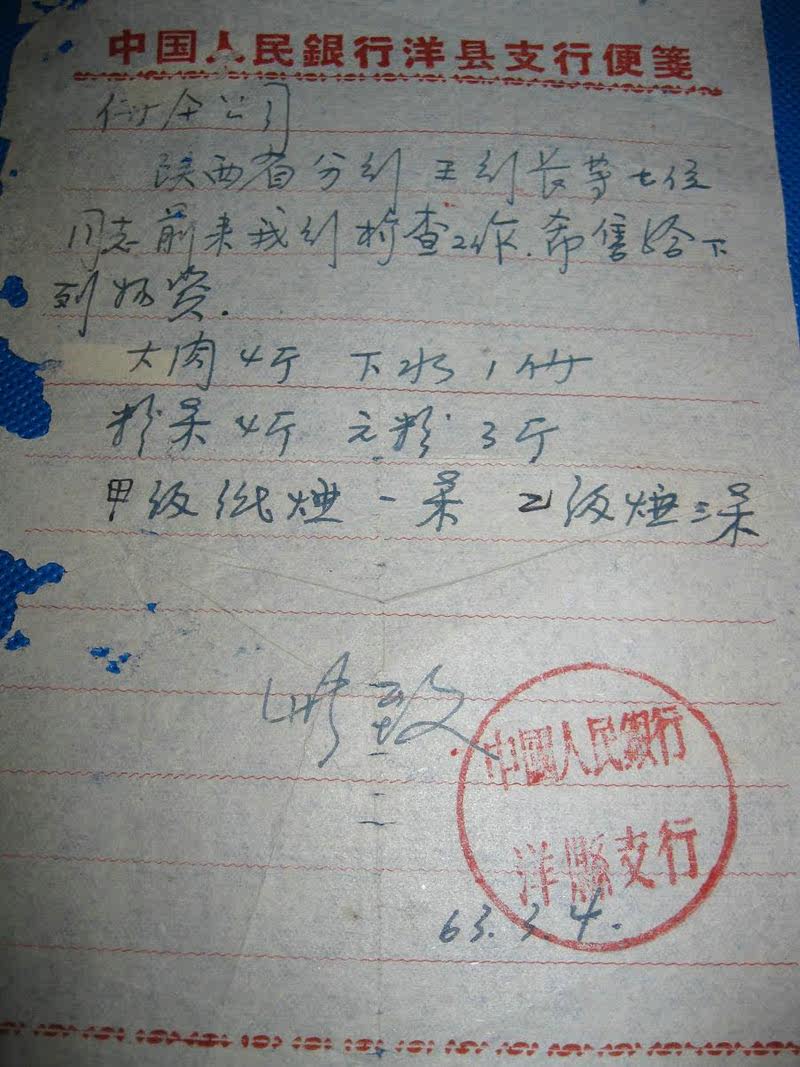 中国人民銀行洋县支行便笺
公司
陕西省分行王行长等七位
同志前来我行检查工作.希售给下
列物资.
大肉4斤 下水1付
粉条4斤 元粉3斤
甲级纸烟一条 乙级烟三条
此致
中國人民銀行
洋縣支行
63.3.4.